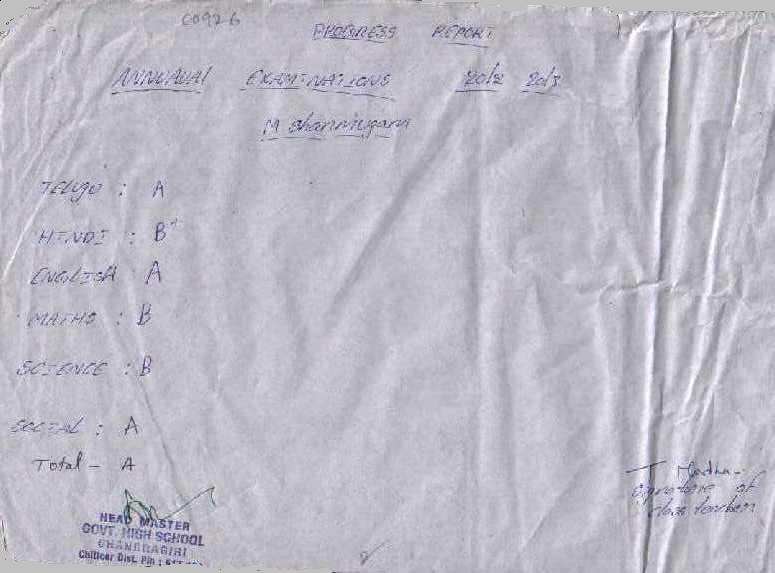 C0926
PROGRESS REPORT
ANNUAUAL EXAMINATIONS 2012 2013
M Shanmugam
TELUGO : A
HINDI : B+
ENGLISH A
MATHS : B
SCIENCE : B
SOCIAL : A
Total - A
T Madhu
Signature of
class teacher
HEAD MASTER
GOVT. HIGH SCHOOL
CHANDRAGIRI
Chittoor Dist. Pin :